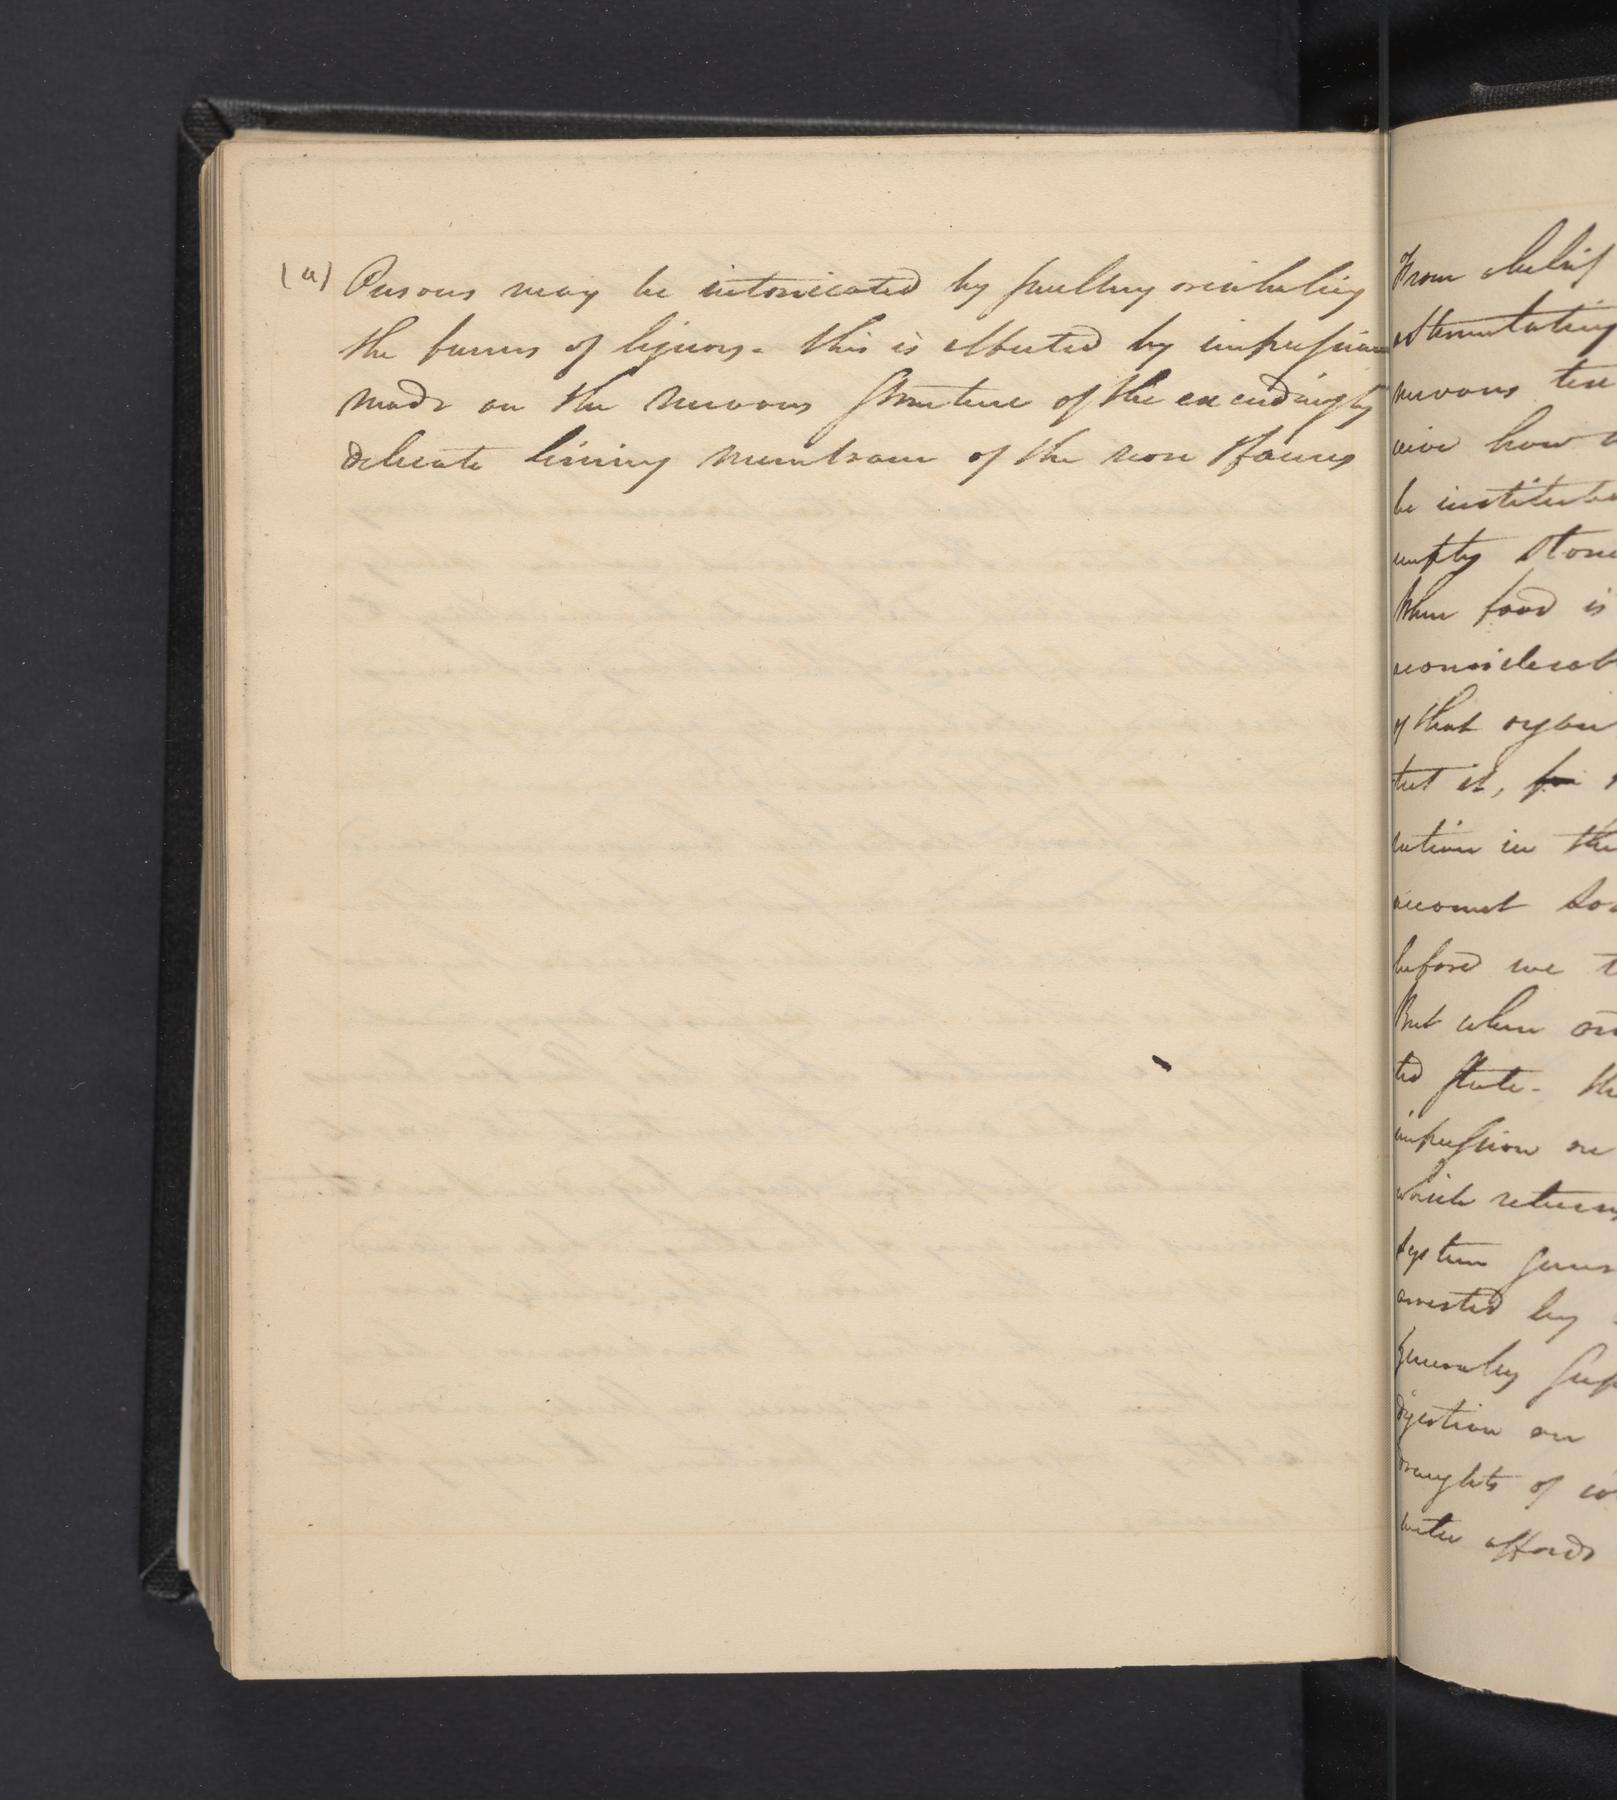 (a) Persons may be intoxicated by smelling or inhaling
the fumes of liquors - this is effected by impressions
made on the nervous structure of the exceedingly
delicate lining membrane of the nose & fauces
From debil
stimulating
nervous
how
be institute
empty stom
When food is
considerab
of that organ
it, for
in the
account
before we t
But when
ted state - the
impression on
which returns
System gener
arrested by
generally
digestion on
draughts of co
water affords